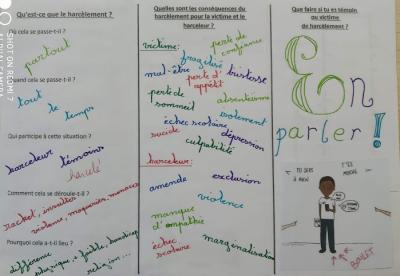 Qu'est-ce que le harcèlement ?
Où cela se passe-t-il ?
partout
Quand cela se passe-t-il ?
tout le temps
Qui participe à cette situation ?
harceleur témoins
harcelé
Comment cela se déroule-t-il ?
racket, insultes
violence, moqueries, menaces
Pourquoi cela a-t-il lieu ?
différence
physique + faible, handicap
religion ...
Quelles sont les conséquences du
harcèlement pour la victime et le
harceleur ?
victime:
perte de
confiance
fragilité
mal-être
perte d'
appétit
tristesse
perte de
sommeil
absentéisme
isolement
échec scolaire
dépression
suicide
culpabilité
harceleur:
amende
exclusion
violence
manque
d'empathie
échec
scolaire
marginalisation
Que faire si tu es témoin
ou victime
de harcèlement ?
En
parler !
TU SERS
À RIEN
T'ES
MOCHE
SHOT ON REDMI 7